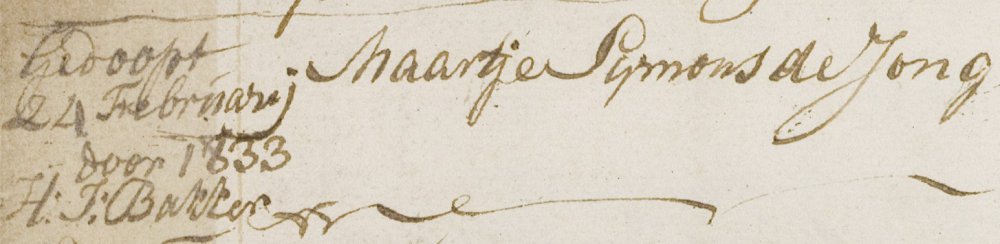 Gedoopt
24 Februarij
door 1833
H: F: Bakker
Maartje Symons de Jong